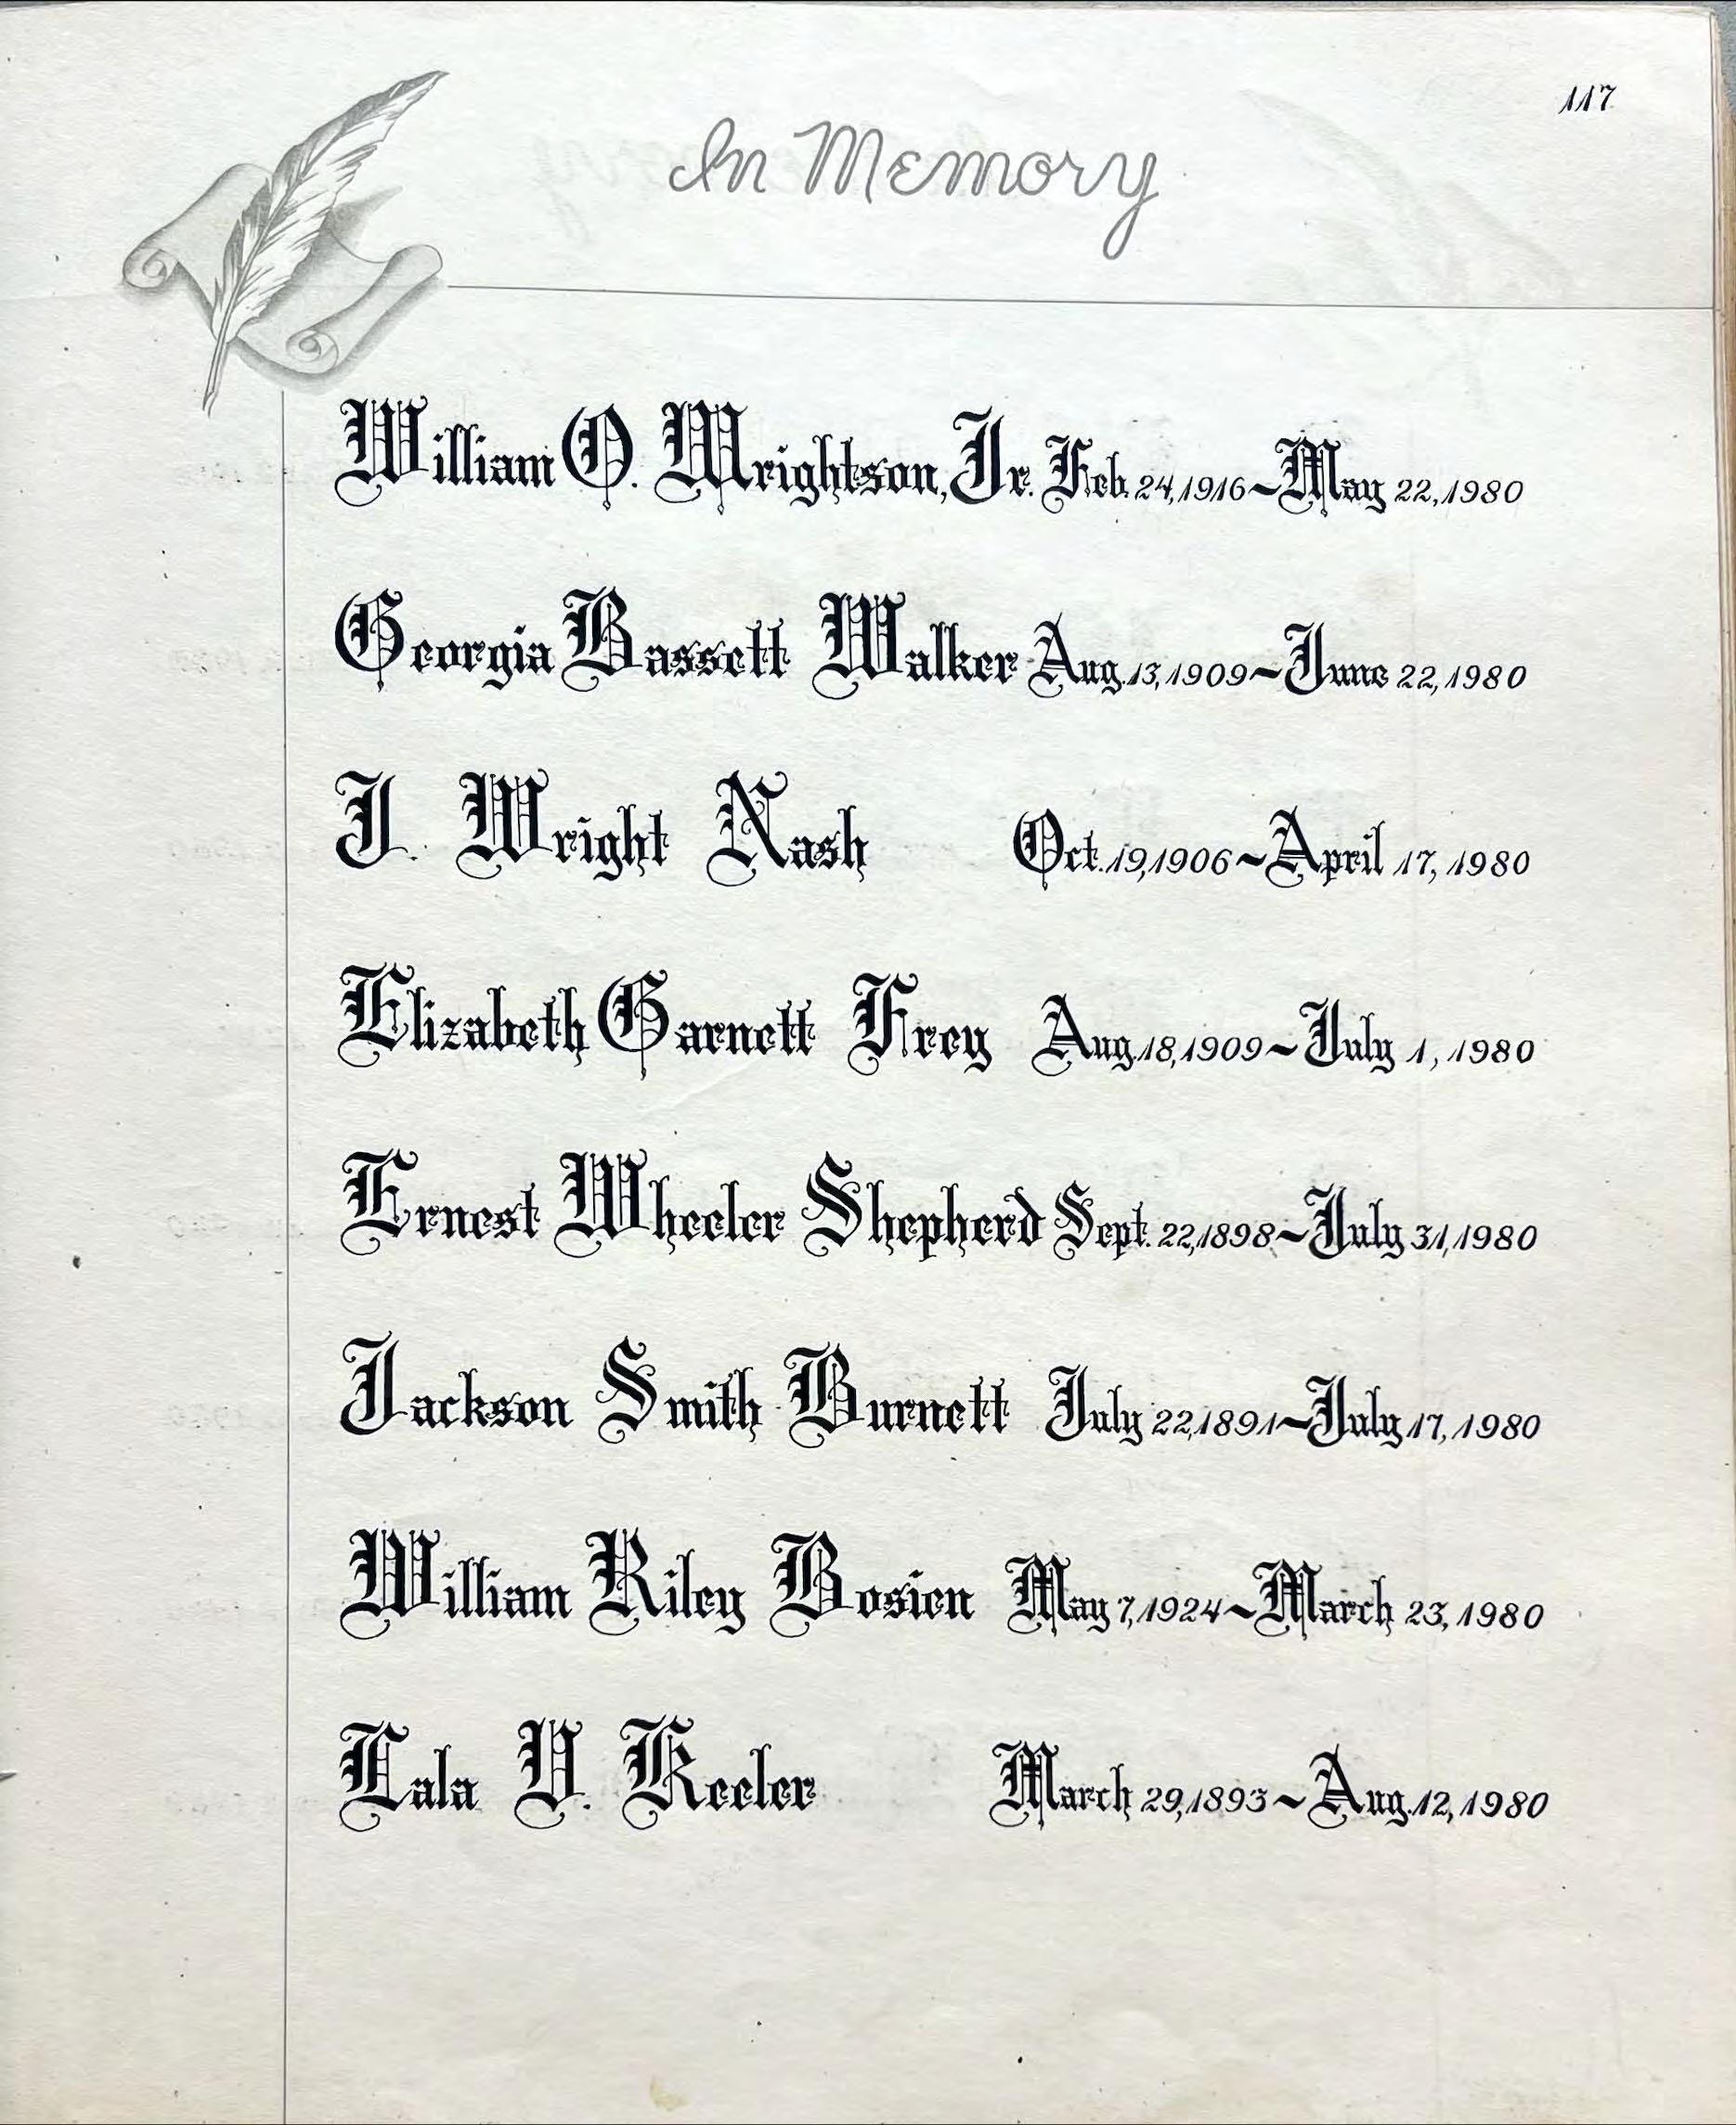 117
In Memory
William O. Wrightson, Jr. Feb. 24, 1916 ~ May 22, 1980
Georgia Bassett Walker Aug. 13, 1909 ~ June 22, 1980
J. Wright Nash Oct. 19, 1906 ~ April 17, 1980
Elizabeth Garnett Frey Aug. 18, 1909 ~ July 1, 1980
Ernest Wheeler Shepherd Sept. 22, 1898 ~ July 31, 1980
Jackson Smith Burnett July 22, 1891 ~ July 17, 1980
William Riley Bosien May 7, 1924 ~ March 23, 1980
Lala V. Keeler March 29, 1893 ~ Aug. 12, 1980